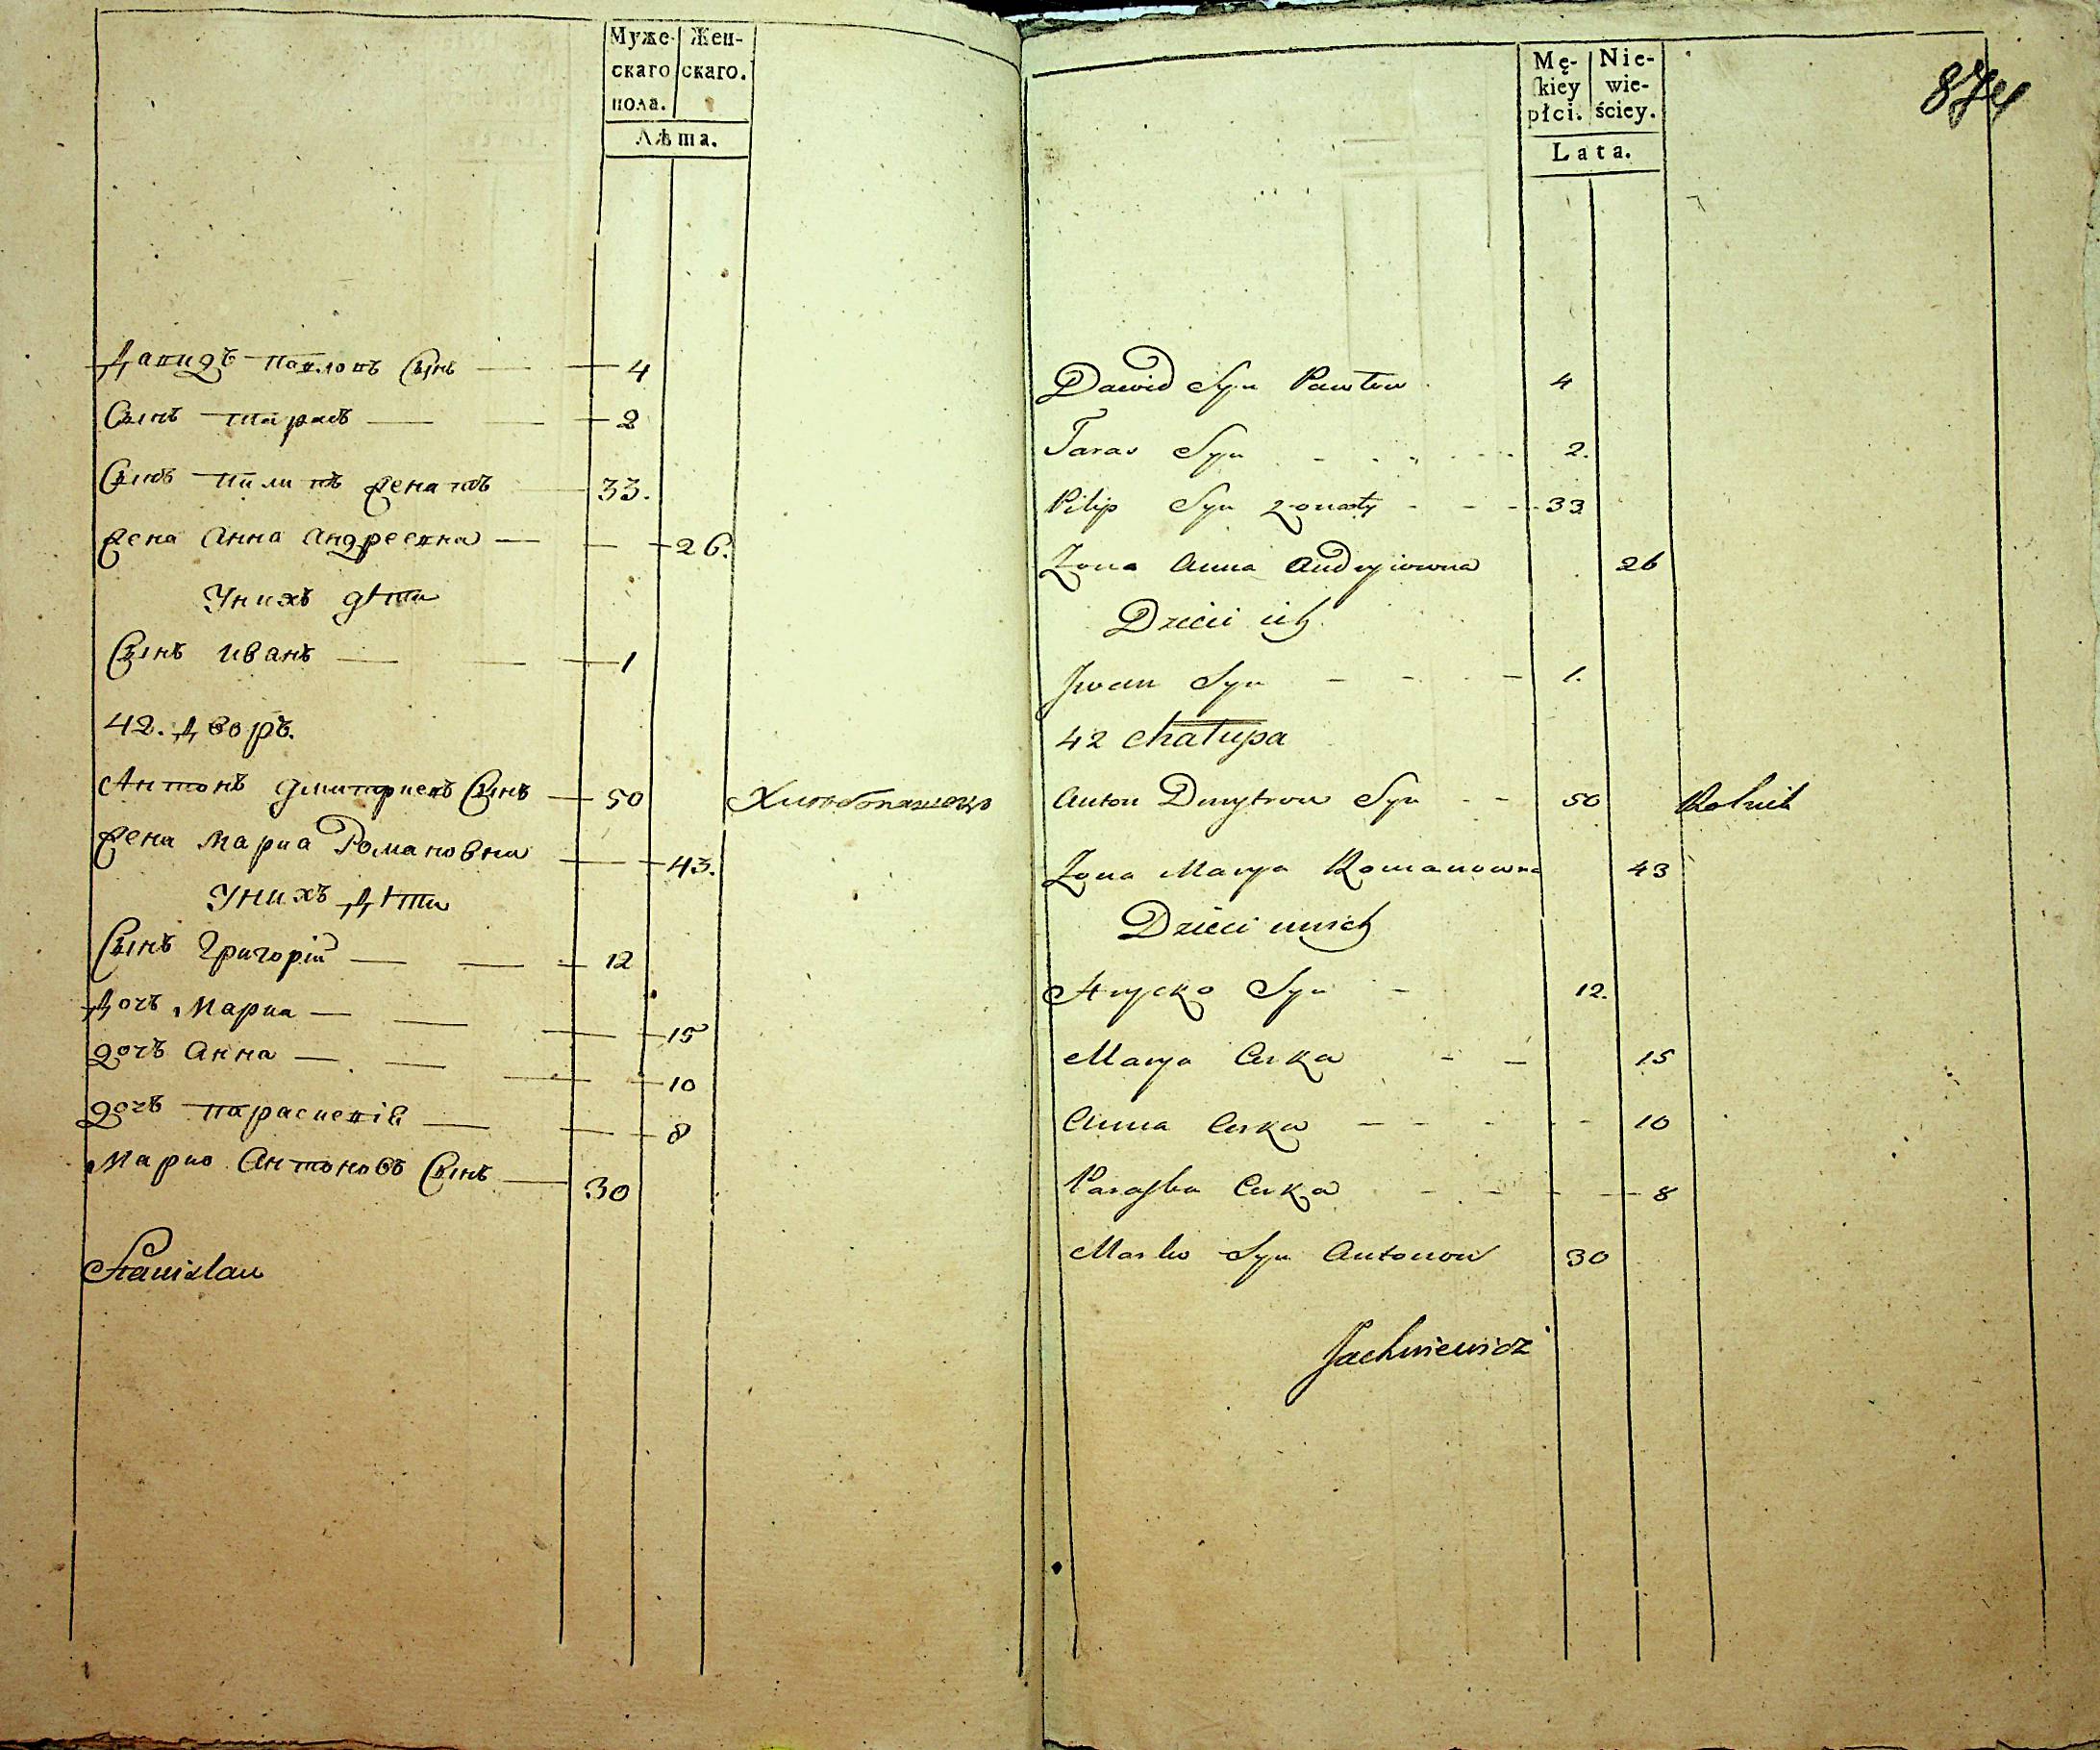 Муже-
скаго
пола.
Жен-
скаго.
Лѣта.
Давидъ Павловъ Сынъ 4
Сынъ Тарасъ 2
Сынъ Пилипъ женатъ 33.
Жена Анна Андреевна 26.
У нихъ дѣти
Сынъ Иванъ 1
42. Дворъ.
Антонъ Дмитриевъ Сынъ 50 Хлебопашецъ
Жена Мариа Романовна 43.
У нихъ Дѣти
Сынъ Григорій 12
Дочъ Мариа 15
дочъ Анна 10
дочъ Парасцевія 8
Марко Антоновъ Сынъ 30
Stanislaw
874
Mę-
skiey
płci.
Nie-
wie-
ściey.
Lata.
Dawid Syn Pawłow 4
Taras Syn 2.
Pilip Syn żonaty 33
Żona Anna Andryiowna 26
Dzieci ich
Jwan Syn 1.
42 Chałupa
Anton Dmytrow Syn 50 Rolnik
Żona Marya Romanowna 43
Dzieci unich
Hrycko Syn 12.
Marya Curka 15
Anna Curka 10
Paraska Curka 8
Marko Syn Antonow 30
Jachniewicz